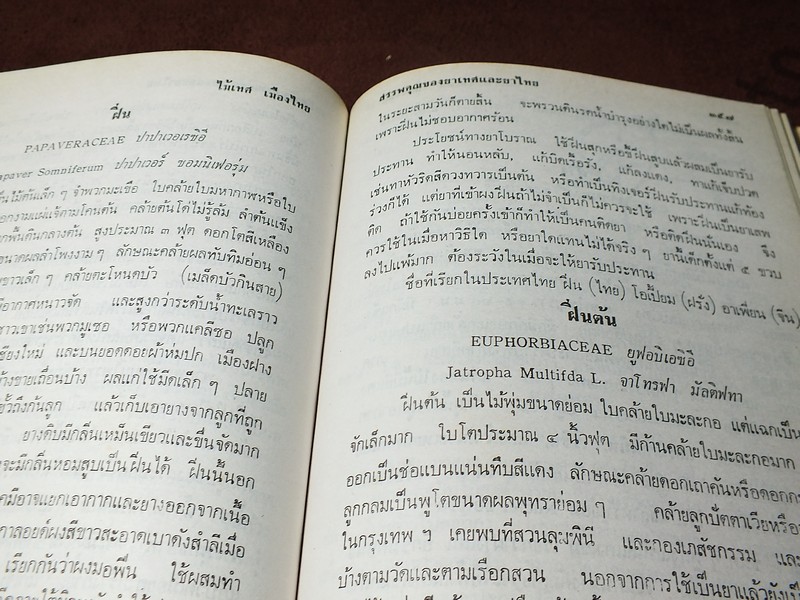 ไม้เทศ เมืองไทย
ฝิ่น
PAPAVERACEAE ปาปาเวอเรซิอี
apaver Somniferum ปาปาเวอร์ ซอมนิเฟอรุ่ม
เป็นไม้ต้นเล็ก ๆ จำพวกมะเขือ ใบคล้ายใบมหากาฬหรือใบ
คล้ายต้นโต่ไม่รู้ล้ม ลำต้นแข็ง
สูงประมาณ ๓ ฟุต ดอกโตสีเหลือง
ขนาดผลลำโพงงาม ๆ ลักษณะคล้ายผลทับทิมอ่อน ๆ
ขาวเล็ก ๆ คล้ายตะโหนดบัว (เมล็ดบัวกินสาย)
มีอากาศหนาวจัด และสูงกว่าระดับน้ำทะเลราว
ชาวเขาเช่นพวกมูเซอ หรือพวกแคลีซอ ปลูก
เชียงใหม่ และบนยอดดอยผ้าห่มปก เมืองฝาง
ข้างชายเถื่อนบ้าง ผลแก่ใช้มีดเล็ก ๆ ปลาย
แล้วเก็บเอายางจากลูกที่ถูก
ยางดิบมีกลิ่นเหม็นเขียวและขื่นจัดมาก
จะมีกลิ่นหอมสูบเป็นฝิ่นได้ ฝิ่นนั้นอก
เคมีอาจแยกเอากากและยางออกจากเนื้อ
กาลอยด์ผงสีขาวสะอาดเบาดังสำลีเมื่อ
เรียกกันว่าผงมอฟีน ใช้ผสมทำ
สรรพคุณของยาเทศและยาไทย ๓๕๗
ในระยะสามวันก็ตายสิ้น จะพรวนดินรดน้ำบำรุงอย่างใดไม่เป็นผลทั้งสิ้น
เพราะฝิ่นไม่ชอบอากาศร้อน
ประโยชน์ทางยาโบราณ ใช้ฝิ่นสุกหรือขี้ฝิ่นสูบแล้วผสมเป็นยารับ
ประทาน ทำให้นอนหลับ, แก้บิดเรื้อรัง, แก้ลงแดง, ทาแก้เจ็บปวด
เช่นทาหัวริดสีดวงทวารเป็นต้น หรือทำเป็นทิงเจอร์ฝิ่นรับประทานแก้ท้อง
ร่วงก็ได้ แต่ยาที่เข้าผงฝิ่นถ้าไม่จำเป็นก็ไม่ควรจะใช้ เพราะฝิ่นเป็นยาเสพ
ติด ถ้าใช้กันบ่อยครั้งเข้าก็ทำให้เป็นคนติดยา หรือติดฝิ่นนั่นเอง จึง
ควรใช้ในเมื่อหาวิธีใด หรือยาใดแทนไม่ได้จริง ๆ ยานี้เด็กตั้งแต่ ๕ ขวบ
ลงไปแพ้มาก ต้องระวังในเมื่อจะให้ยารับประทาน
ชื่อที่เรียกในประเทศไทย ฝิ่น (ไทย) โอเปี้ยม (ฝรั่ง) อาเพียน (จีน)
ฝิ่นต้น
EUPHORBIACEAE ยูฟอบิเอซิอี
Jatropha Multifda L. จาโทรฟา มัลติฟทา
ฝิ่นต้น เป็นไม้พุ่มขนาดย่อม ใบคล้ายใบมะละกอ แต่แฉกเป็น
จักเล็กมาก ใบโตประมาณ ๔ นิ้วฟุต มีก้านคล้ายใบมะละกอมาก
ออกเป็นช่อแบนแน่นทึบสีแดง ลักษณะคล้ายดอกเถาคันหรือดอกก
ลูกกลมเป็นพูโตขนาดผลพุทราย่อม ๆ คล้ายลูกปัตตาเวียหรือ
ในกรุงเทพ ฯ เคยพบที่สวนลุมพินี และกองเภสัชกรรม และ
บ้างตามวัดและตามเรือกสวน นอกจากการใช้เป็นยาแล้วยังเป็